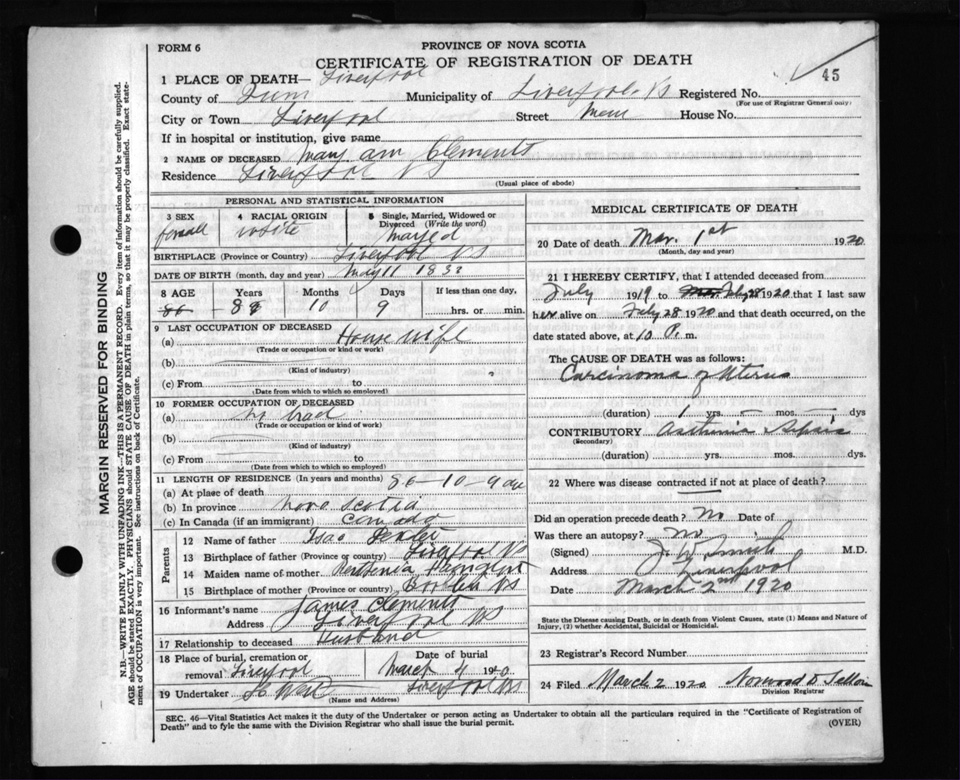 FORM 6
PROVINCE OF NOVA SCOTIA
CERTIFICATE OF REGISTRATION OF DEATH
45
1 PLACE OF DEATH— Liverpool
County of Municipality of Liverpool NS Registered No.
(For use of Registrar General only)
City or Town Liverpool Street Main House No.
If in hospital or institution, give name
2 NAME OF DECEASED Mary Ann Clements
Residence Liverpool NS
(Usual place of abode)
PERSONAL AND STATISTICAL INFORMATION
3 SEX
female
4 RACIAL ORIGIN
white
5 Single, Married, Widowed or Divorced (Write the word)
BIRTHPLACE (Province or Country) Liverpool NS
DATE OF BIRTH (month, day and year) May 11 183
8 AGE Years Months Days If less than one day,
86 10 9 hrs. or min.
9 LAST OCCUPATION OF DECEASED
(a) House wife
(Trade or occupation or kind or work)
(b)
(Kind of industry)
(c) From to
(Date from which to which so employed)
10 FORMER OCCUPATION OF DECEASED
(a)
(Trade or occupation or kind of work)
(b)
(Kind of industry)
(c) From to
(Date from which to which so employed)
11 LENGTH OF RESIDENCE (In years and months)
(a) At place of death 86-10-9
(b) In province Nova Scotia
(c) In Canada (if an immigrant) Canada
Parents
12 Name of father Isac
13 Birthplace of father (Province or country) Liverpool NS
14 Maiden name of mother
15 Birthplace of mother (Province or country) NS
16 Informant's name James Clements
Address Liverpool NS
17 Relationship to deceased Husband
18 Place of burial, cremation or removal Liverpool
Date of burial
March 4 1920
19 Undertaker Liverpool NS
(Name and Address)
MEDICAL CERTIFICATE OF DEATH
20 Date of death Mar. 1st 1920
(Month, day and year)
21 I HEREBY CERTIFY, that I attended deceased from
July 1919 to 1920 that I last saw
her alive on Feby 28 1920 and that death occurred, on the
date stated above, at 10 P. m.
The CAUSE OF DEATH was as follows:
Carcinoma of Uterus
(duration) 1 yrs. — mos. — dys
CONTRIBUTORY Asthenia
(Secondary)
(duration) yrs. mos. dys.
22 Where was disease contracted if not at place of death?
Did an operation precede death? No Date of
Was there an autopsy? No
(Signed) J W Smith M.D.
Address Liverpool
Date March 2nd 1920
State the Disease causing Death, or in death from Violent Causes, state (1) Means and Nature of Injury, (2) whether Accidental, Suicidal or Homicidal.
23 Registrar's Record Number
24 Filed March 2 1920 Norwood D
Division Registrar
SEC. 46—Vital Statistics Act makes it the duty of the Undertaker or person acting as Undertaker to obtain all the particulars required in the "Certificate of Registration of
Death" and to fyle the same with the Division Registrar who shall issue the burial permit.
(OVER)
MARGIN RESERVED FOR BINDING
N.B.—WRITE PLAINLY WITH UNFADING INK—THIS IS A PERMANENT RECORD. Every item of information should be carefully supplied.
AGE should be stated EXACTLY. PHYSICIANS should STATE CAUSE OF DEATH in plain terms, so that it may be properly classified. Exact state-
ment of OCCUPATION is very important. See instructions on back of Certificate.